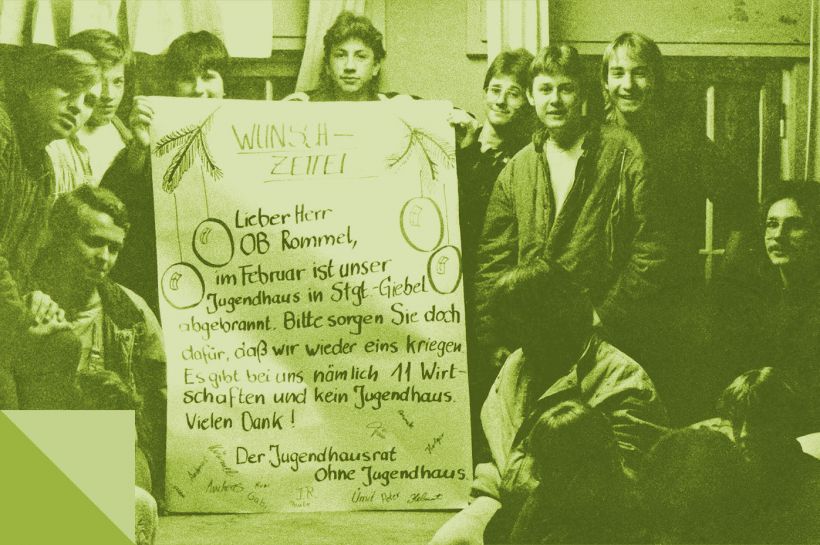 WUNSCH-
ZETTEL
Lieber Herr
OB Rommel,
im Februar ist unser
Jugendhaus in Stgt.-Giebel
abgebrannt. Bitte sorgen Sie doch
dafür, daß wir wieder eins kriegen.
Es gibt bei uns nämlich 11 Wirt-
schaften und kein Jugendhaus.
Vielen Dank!
Der Jugendhausrat
Ohne Jugendhaus.
Gabi
Ümit Peter Helmut